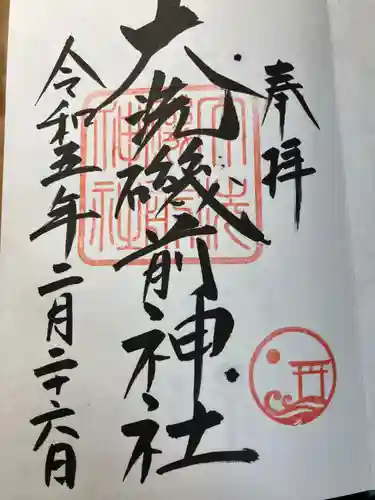 奉拝
大洗磯前神社
令和五年二月二十六日